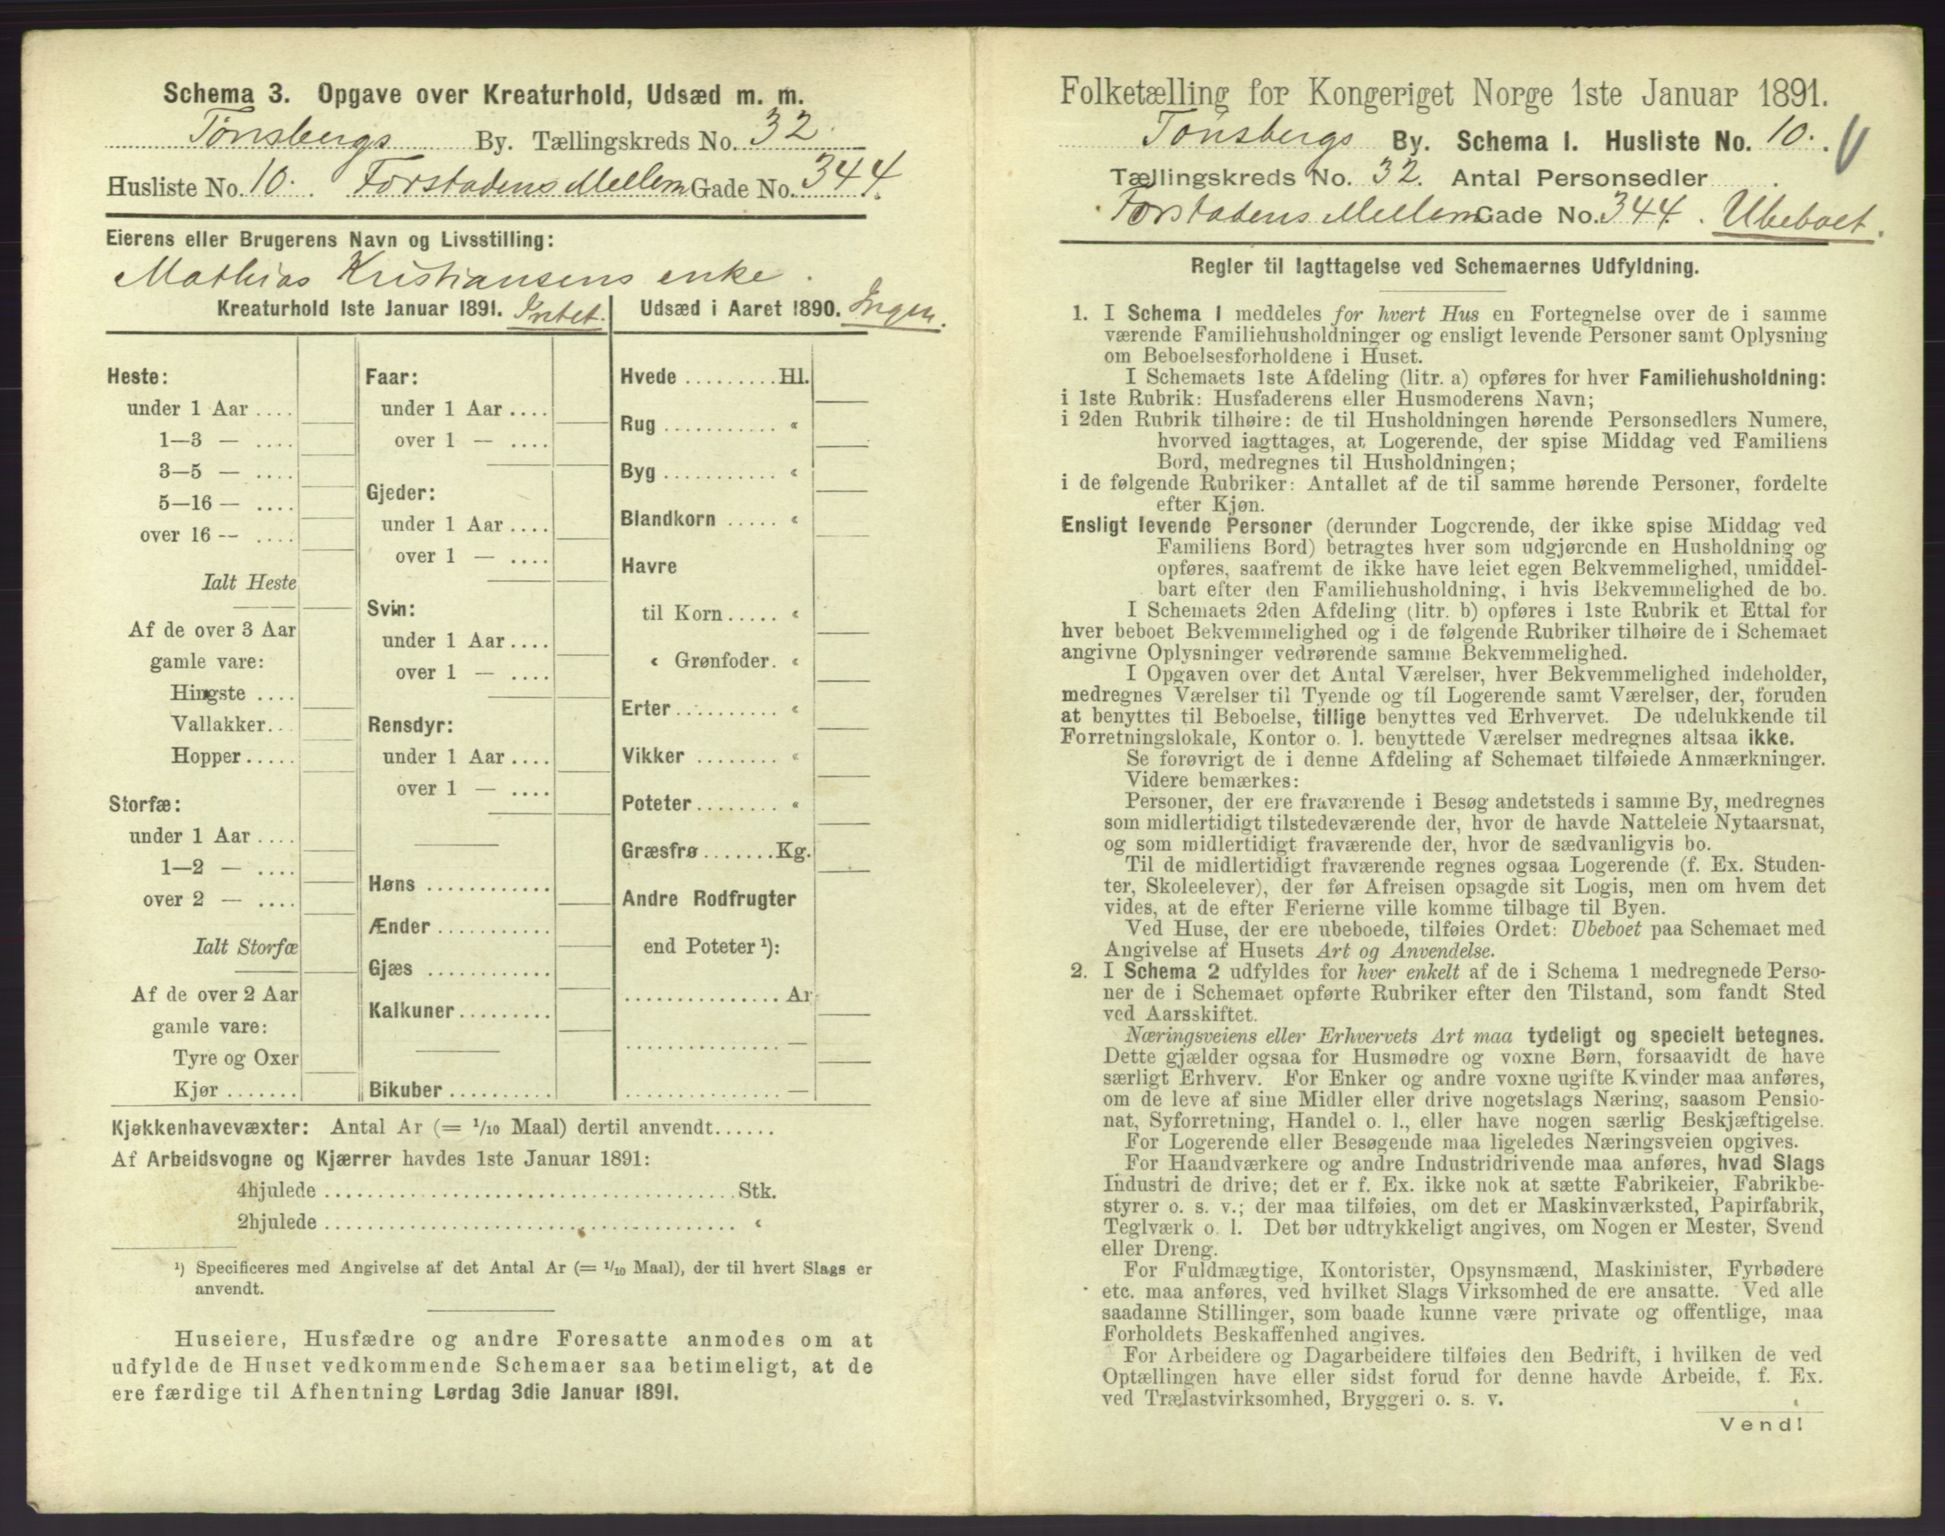 Schema 3. Opgave over Kreaturhold, Udsæd m. m.
Tønsbergs By. Tællingskreds No. 32.
Husliste No. 10. Forstadens Mellem Gade No. 344.
Eierens eller Brugerens Navn og Livsstilling:
Mathias Kristiansens enke.
Kreaturhold 1ste Januar 1891. Intet.
Heste:
under 1 Aar ....
1—3 — ....
3—5 — ....
5—16 — ....
over 16 — ....
Ialt Heste
Af de over 3 Aar
gamle vare:
Hingste ....
Vallakker...
Hopper.....
Storfæ:
under 1 Aar ....
1—2 — ....
over 2 — ....
Ialt Storfæ
Af de over 2 Aar
gamle vare:
Tyre og Oxer
Kjør .......
Faar:
under 1 Aar ....
over 1 — ....
Gjeder:
under 1 Aar ....
over 1 — ....
Svin:
under 1 Aar ....
over 1 — ....
Rensdyr:
under 1 Aar ....
over 1 — ....
Høns ............
Ænder ...........
Gjæs ............
Kalkuner.........
Bikuber ..........
Udsæd i Aaret 1890. Ingen.
Hvede .........Hl.
Rug ........... «
Byg ........... «
Blandkorn ..... «
Havre
til Korn..... «
« Grønfoder. «
Erter.......... «
Vikker ........ «
Poteter........ «
Græsfrø.......Kg.
Andre Rodfrugter
end Poteter ¹):
...............Ar
............... —
............... —
Kjøkkenhavevæxter: Antal Ar (= 1/10 Maal) dertil anvendt......
Af Arbeidsvogne og Kjærrer havdes 1ste Januar 1891:
4hjulede ........................................Stk.
2hjulede ........................................ «
¹) Specificeres med Angivelse af det Antal Ar (= 1/10 Maal), der til hvert Slags er
anvendt.
Huseiere, Husfædre og andre Foresatte anmodes om at
udfylde de Huset vedkommende Schemaer saa betimeligt, at de
ere færdige til Afhentning Lørdag 3die Januar 1891.
Folketælling for Kongeriget Norge 1ste Januar 1891.
Tønsbergs By. Schema 1. Husliste No. 10.
Tællingskreds No. 32. Antal Personsedler .
Forstadens Mellem Gade No. 344. Ubeboet.
Regler til Iagttagelse ved Schemaernes Udfyldning.
1. I Schema 1 meddeles for hvert Hus en Fortegnelse over de i samme
værende Familiehusholdninger og ensligt levende Personer samt Oplysning
om Beboelsesforholdene i Huset.
I Schemaets 1ste Afdeling (litr. a) opføres for hver Familiehusholdning:
i 1ste Rubrik: Husfaderens eller Husmoderens Navn;
i 2den Rubrik tilhøire: de til Husholdningen hørende Personsedlers Numere,
hvorved iagttages, at Logerende, der spise Middag ved Familiens
Bord, medregnes til Husholdningen;
i de følgende Rubriker: Antallet af de til samme hørende Personer, fordelte
efter Kjøn.
Ensligt levende Personer (derunder Logerende, der ikke spise Middag ved
Familiens Bord) betragtes hver som udgjørende en Husholdning og
opføres, saafremt de ikke have leiet egen Bekvemmelighed, umiddel-
bart efter den Familiehusholdning, i hvis Bekvemmelighed de bo.
I Schemaets 2den Afdeling (litr. b) opføres i 1ste Rubrik et Ettal for
hver beboet Bekvemmelighed og i de følgende Rubriker tilhøire de i Schemaet
angivne Oplysninger vedrørende samme Bekvemmelighed.
I Opgaven over det Antal Værelser, hver Bekvemmelighed indeholder,
medregnes Værelser til Tyende og til Logerende samt Værelser, der, foruden
at benyttes til Beboelse, tillige benyttes ved Erhvervet. De udelukkende til
Forretningslokale, Kontor o. l. benyttede Værelser medregnes altsaa ikke.
Se forøvrigt de i denne Afdeling af Schemaet tilføiede Anmærkninger.
Videre bemærkes:
Personer, der ere fraværende i Besøg andetsteds i samme By, medregnes
som midlertidigt tilstedeværende der, hvor de havde Natteleie Nytaarsnat,
og som midlertidigt fraværende der, hvor de sædvanligvis bo.
Til de midlertidigt fraværende regnes ogsaa Logerende (f. Ex. Studen-
ter, Skoleelever), der før Afreisen opsagde sit Logis, men om hvem det
vides, at de efter Ferierne ville komme tilbage til Byen.
Ved Huse, der ere ubeboede, tilføies Ordet: Ubeboet paa Schemaet med
Angivelse af Husets Art og Anvendelse.
2. I Schema 2 udfyldes for hver enkelt af de i Schema 1 medregnede Perso-
ner de i Schemaet opførte Rubriker efter den Tilstand, som fandt Sted
ved Aarsskiftet.
Næringsveiens eller Erhvervets Art maa tydeligt og specielt betegnes.
Dette gjælder ogsaa for Husmødre og voxne Børn, forsaavidt de have
særligt Erhverv. For Enker og andre voxne ugifte Kvinder maa anføres,
om de leve af sine Midler eller drive nogetslags Næring, saasom Pensio-
nat, Syforretning, Handel o. l., eller have nogen særlig Beskjæftigelse.
For Logerende eller Besøgende maa ligeledes Næringsveien opgives.
For Haandværkere og andre Industridrivende maa anføres, hvad Slags
Industri de drive; det er f. Ex. ikke nok at sætte Fabrikeier, Fabrikbe-
styrer o. s. v.; der maa tilføies, om det er Maskinværksted, Papirfabrik,
Teglværk o. l. Det bør udtrykkeligt angives, om Nogen er Mester, Svend
eller Dreng.
For Fuldmægtige, Kontorister, Opsynsmænd, Maskinister, Fyrbødere
etc. maa anføres, ved hvilket Slags Virksomhed de ere ansatte. Ved alle
saadanne Stillinger, som baade kunne være private og offentlige, maa
Forholdets Beskaffenhed angives.
For Arbeidere og Dagarbeidere tilføies den Bedrift, i hvilken de ved
Optællingen have eller sidst forud for denne havde Arbeide, f. Ex.
ved Trælastvirksomhed, Bryggeri o. s. v.
Vend!